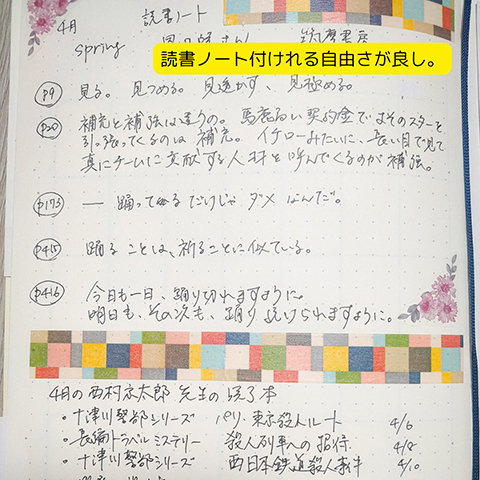 4月 読書ノート
spring
読書ノート付けれる自由さが良し。
p9 見る。見つめる。見透かす、見極める。
p20 補充と補強は違うの。馬鹿高い契約金でよそのスターを
引っ張ってくるのは 補充。イチローみたいに、長い目で見て
真にチームに貢献する人材を呼んでくるのが補強。
p173 — 踊ってるだけじゃ ダメ なんだ。
p415 踊る ことは、祈ることに似ている。
p416 今日も一日、踊り切れますように。
明日も、その次も、踊り続けられますように。
4月の西村京太郎 先生の読了本
・十津川警部シリーズ パリ・東京殺人ルート 4/6
・長編トラベルミステリー 殺人列車への招待 4/8
・十津川警部シリーズ 西日本鉄道殺人事件 4/10